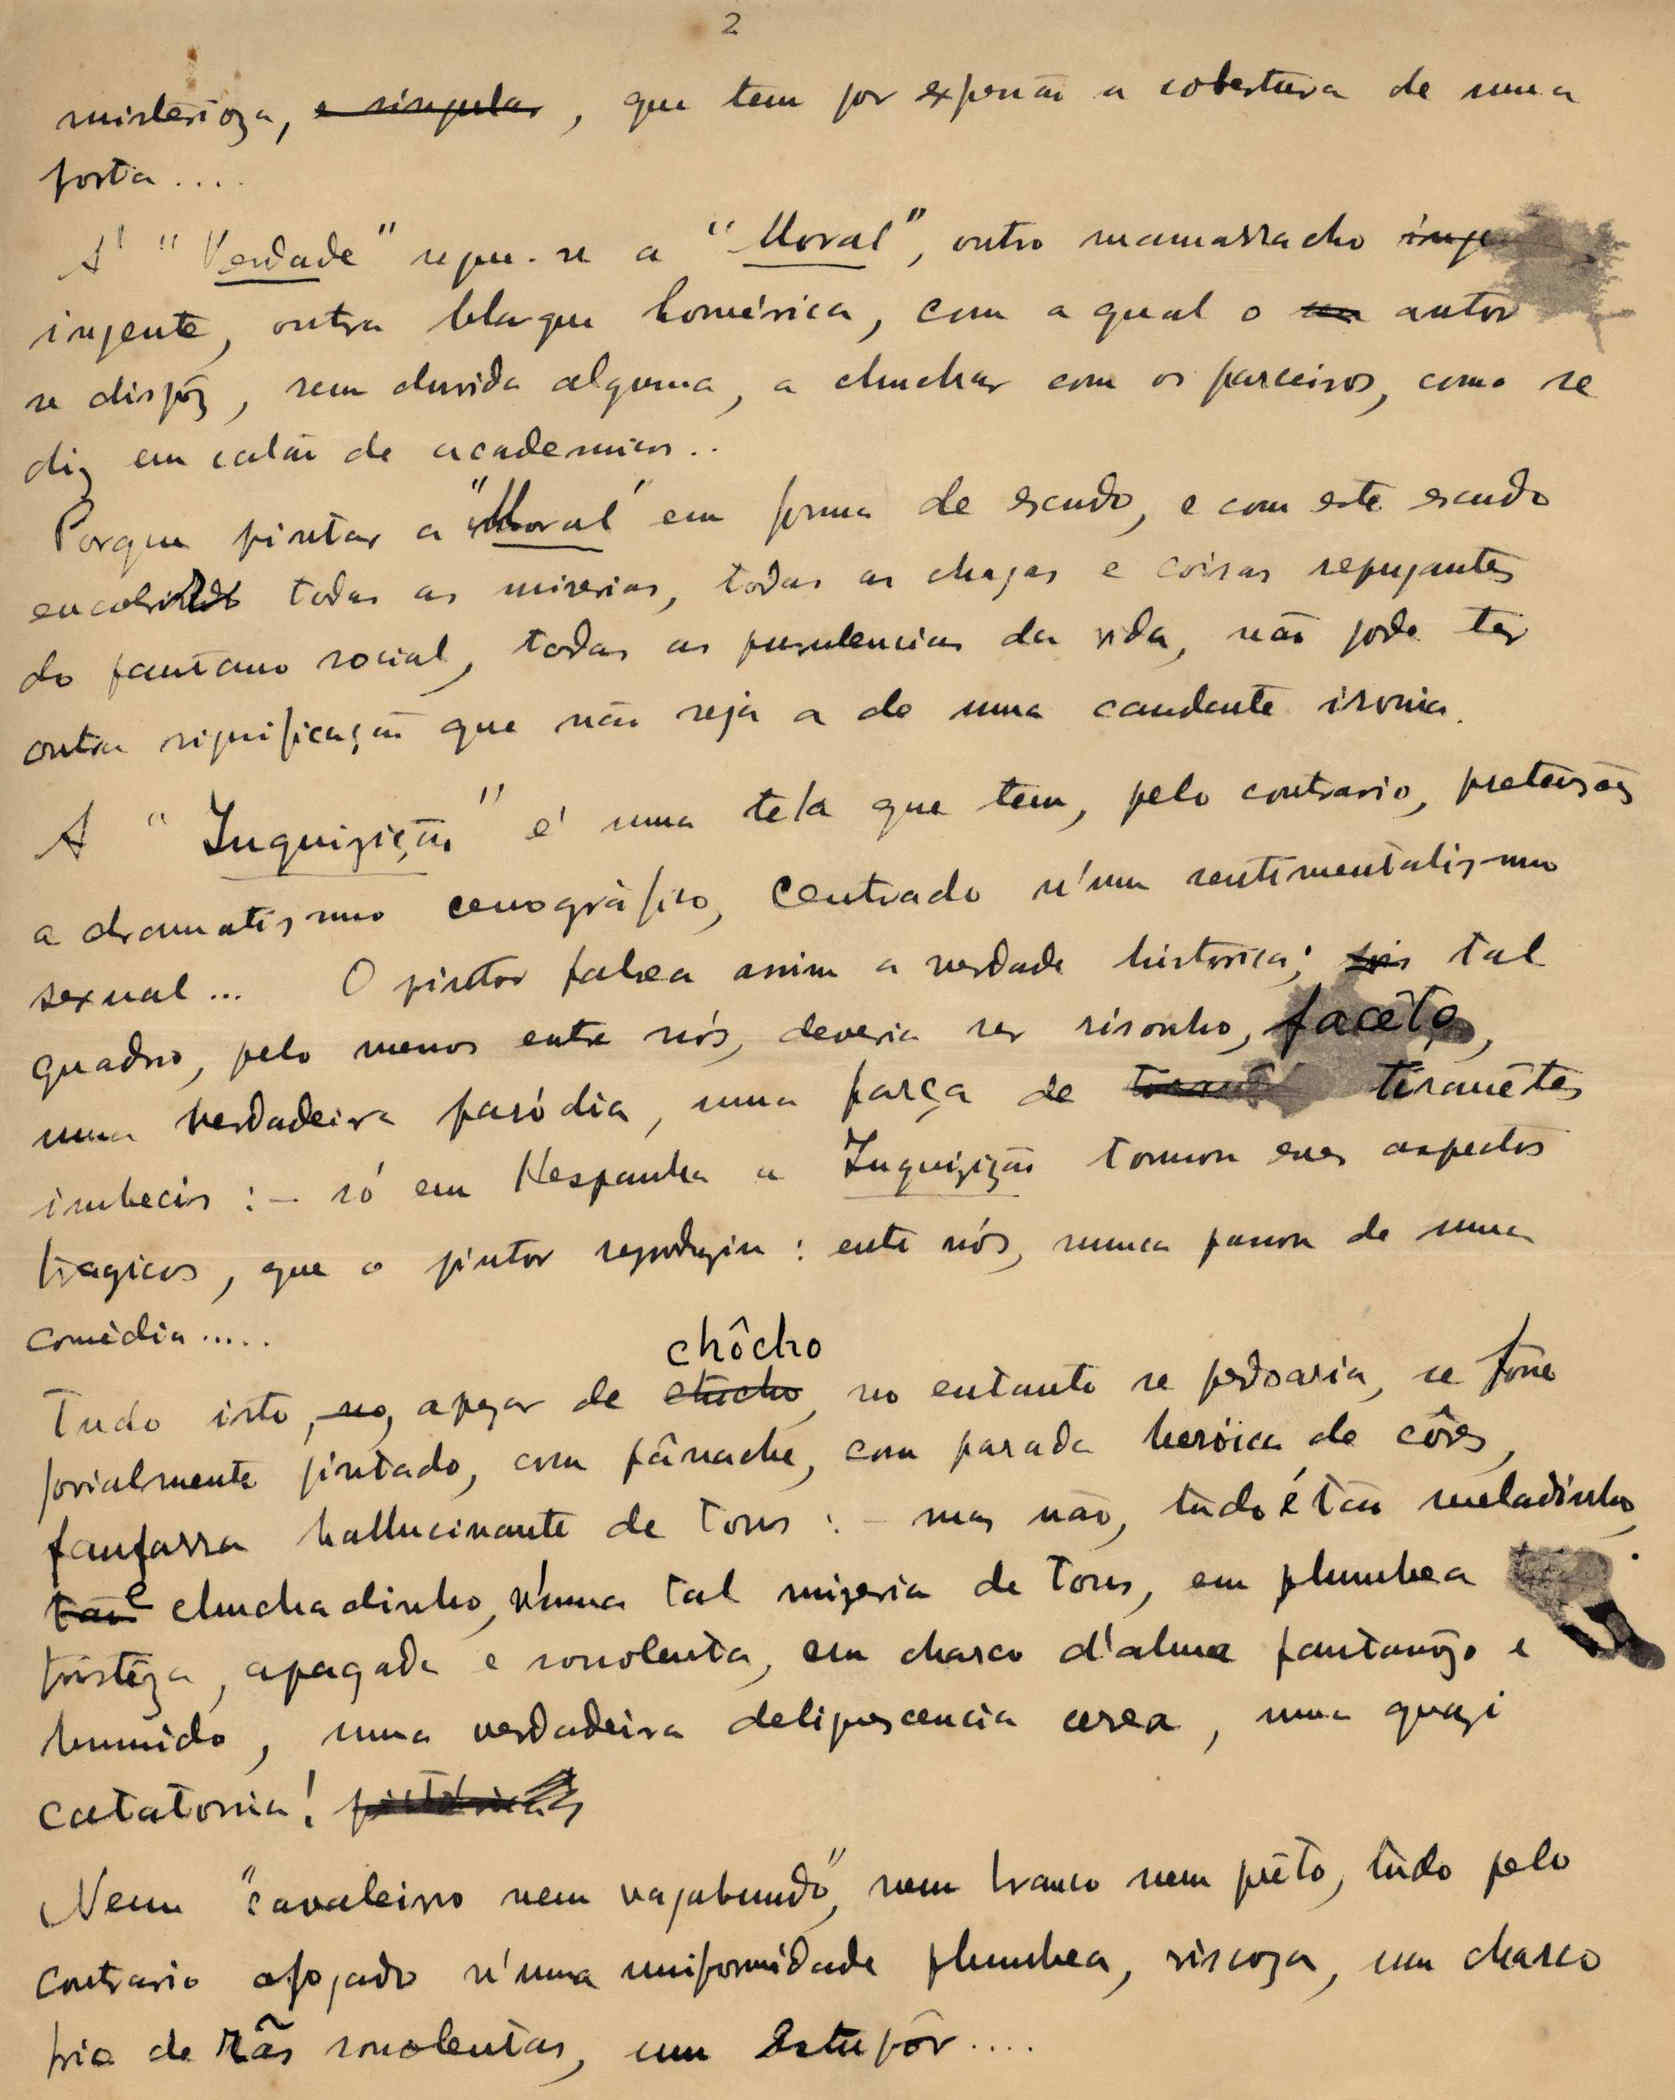 2
misterioza, e singular, que tem por expensão a cobertura de uma
porta....
A' "Verdade" segue-se a "Moral", outro mamarracho inge
ingente, outra blague homérica, com a qual o seu autor
se dispôz, sem duvida alguma, a chuchar com os parceiros, como se
diz em calão de academicos..
Porque pintar a "Moral" em forma de escudo, e com este escudo
encobrindo todas as miserias, todas as chagas e coisas repugantes
do pantano social, todas as purulencias da vida, não pode ter
outra significação que não seja a de uma candente ironia.
A "Inquizição" é uma tela que tem, pelo contrario, pretensões
a dramatismo cenográfico, centrado n'um sentimentalismo
sexual... O pintor falsea assim a verdade historica; tal
quadro, pelo menos entre nós, deveria ser risonho, facêto,
uma verdadeira paródia, uma farça de tiranêtes
imbecis :- só em Hespanha a Inquizição tomou esses aspectos
tragicos, que o pintor reproduziu: entre nós, nunca passou de uma
comédia.....
chôcho
Tudo isto, no, apezar de chucho, no entanto se perdoaria, se fosse
jovialmente pintado, com pânache, com parada heróica de côres,
fanfarra hallucinante de tons :- mas não, tudo é tão meladinho,
tão e chuchadinho, n'uma tal mizeria de tons, em plumbea
tristêza, apagada e sonolenta, em charco d'alma pantanôzo e
humido, uma verdadeira deliquescencia cerea, uma quazi
catatonia! pictórica
Nem "cavaleiro nem vagabundo", nem branco nem prêto, tudo pelo
contrario afogado n'uma uniformidade plumbea, viscoza, um charco
frio de rãs sonolentas, um Estupôr....